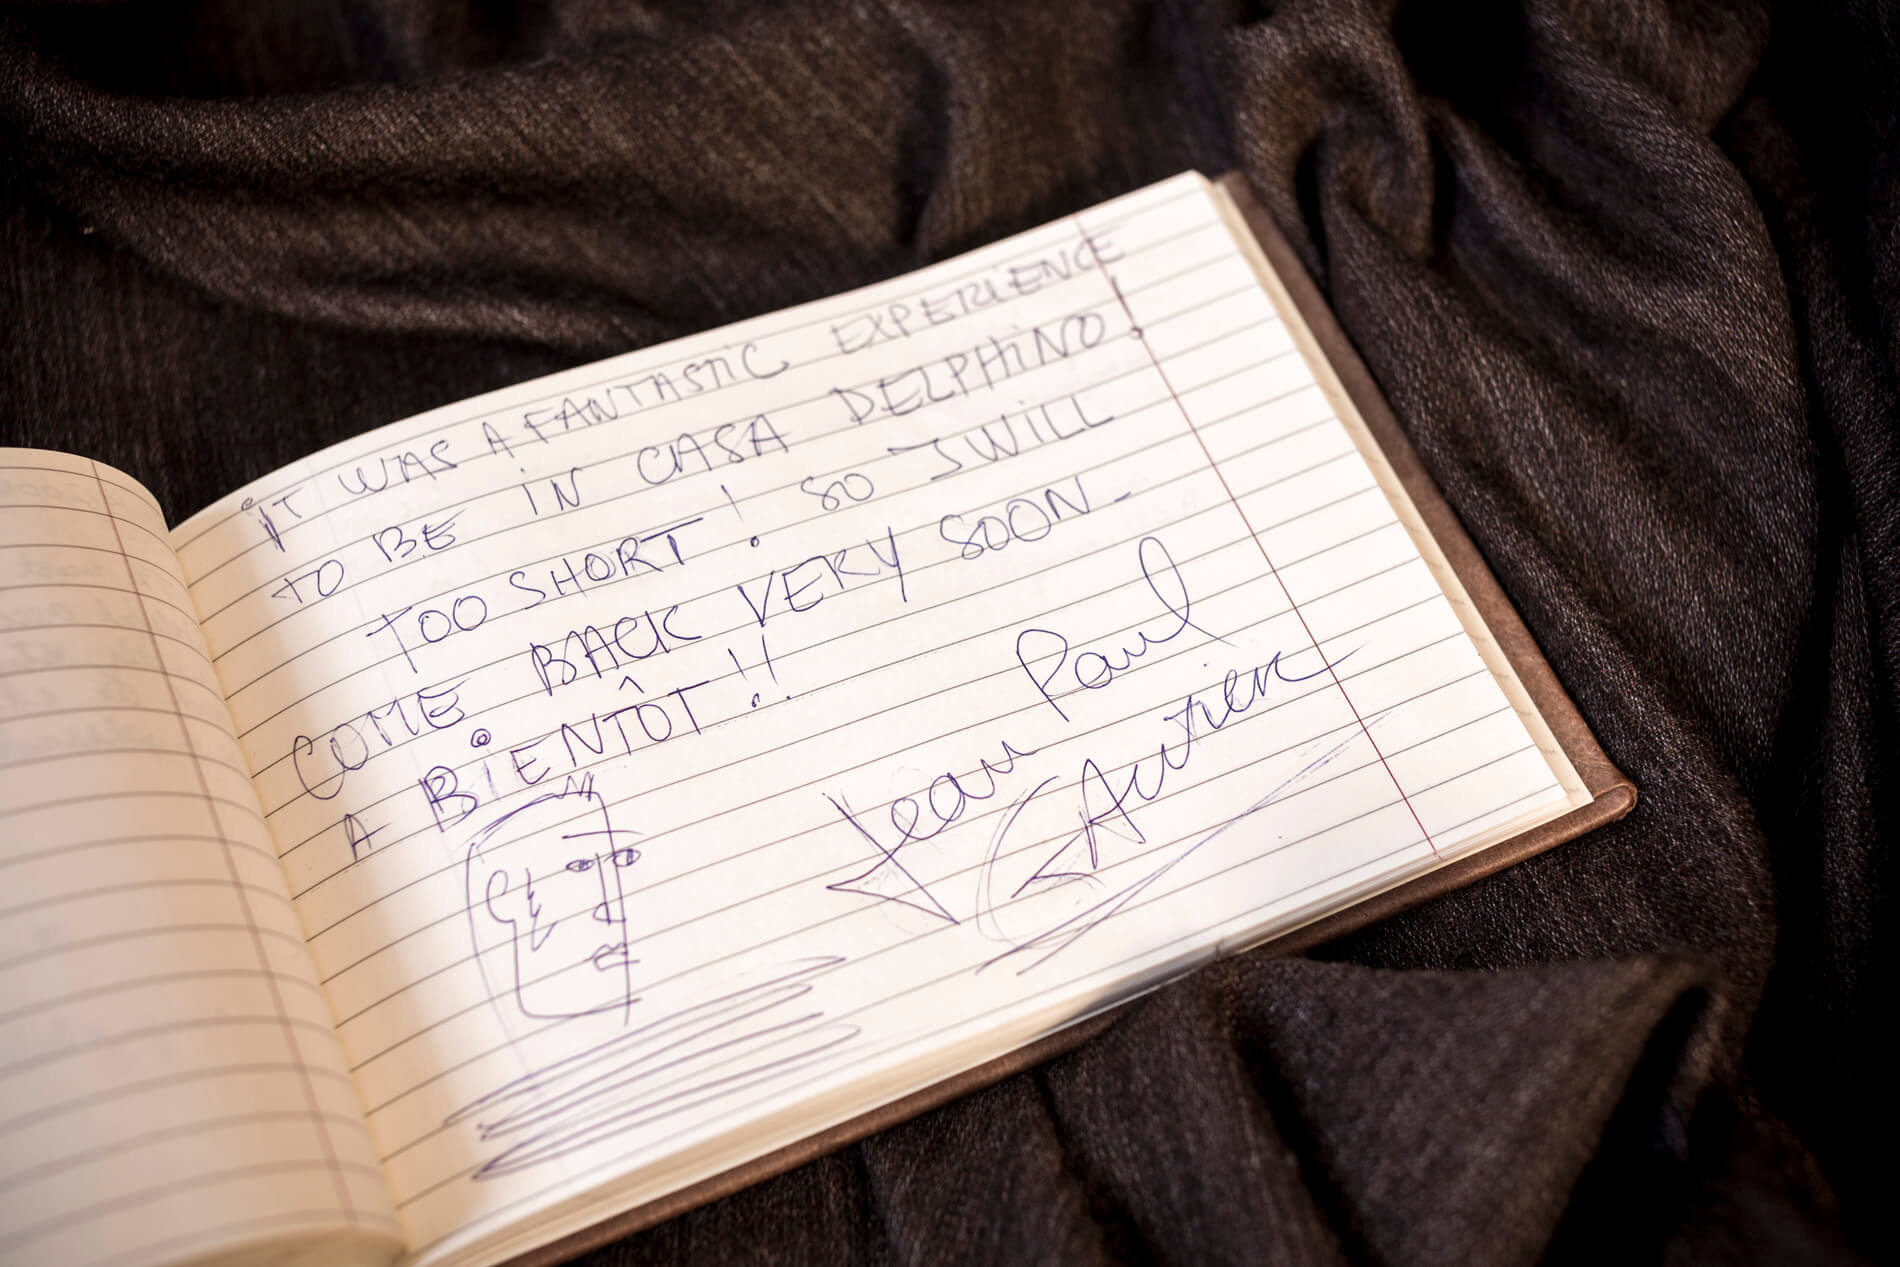 IT WAS A FANTASTIC EXPERIENCE
TO BE IN CASA DELPHINO!
TOO SHORT! SO I WILL
COME BACK VERY SOON-
A BIENTÔT!!
Jean Paul